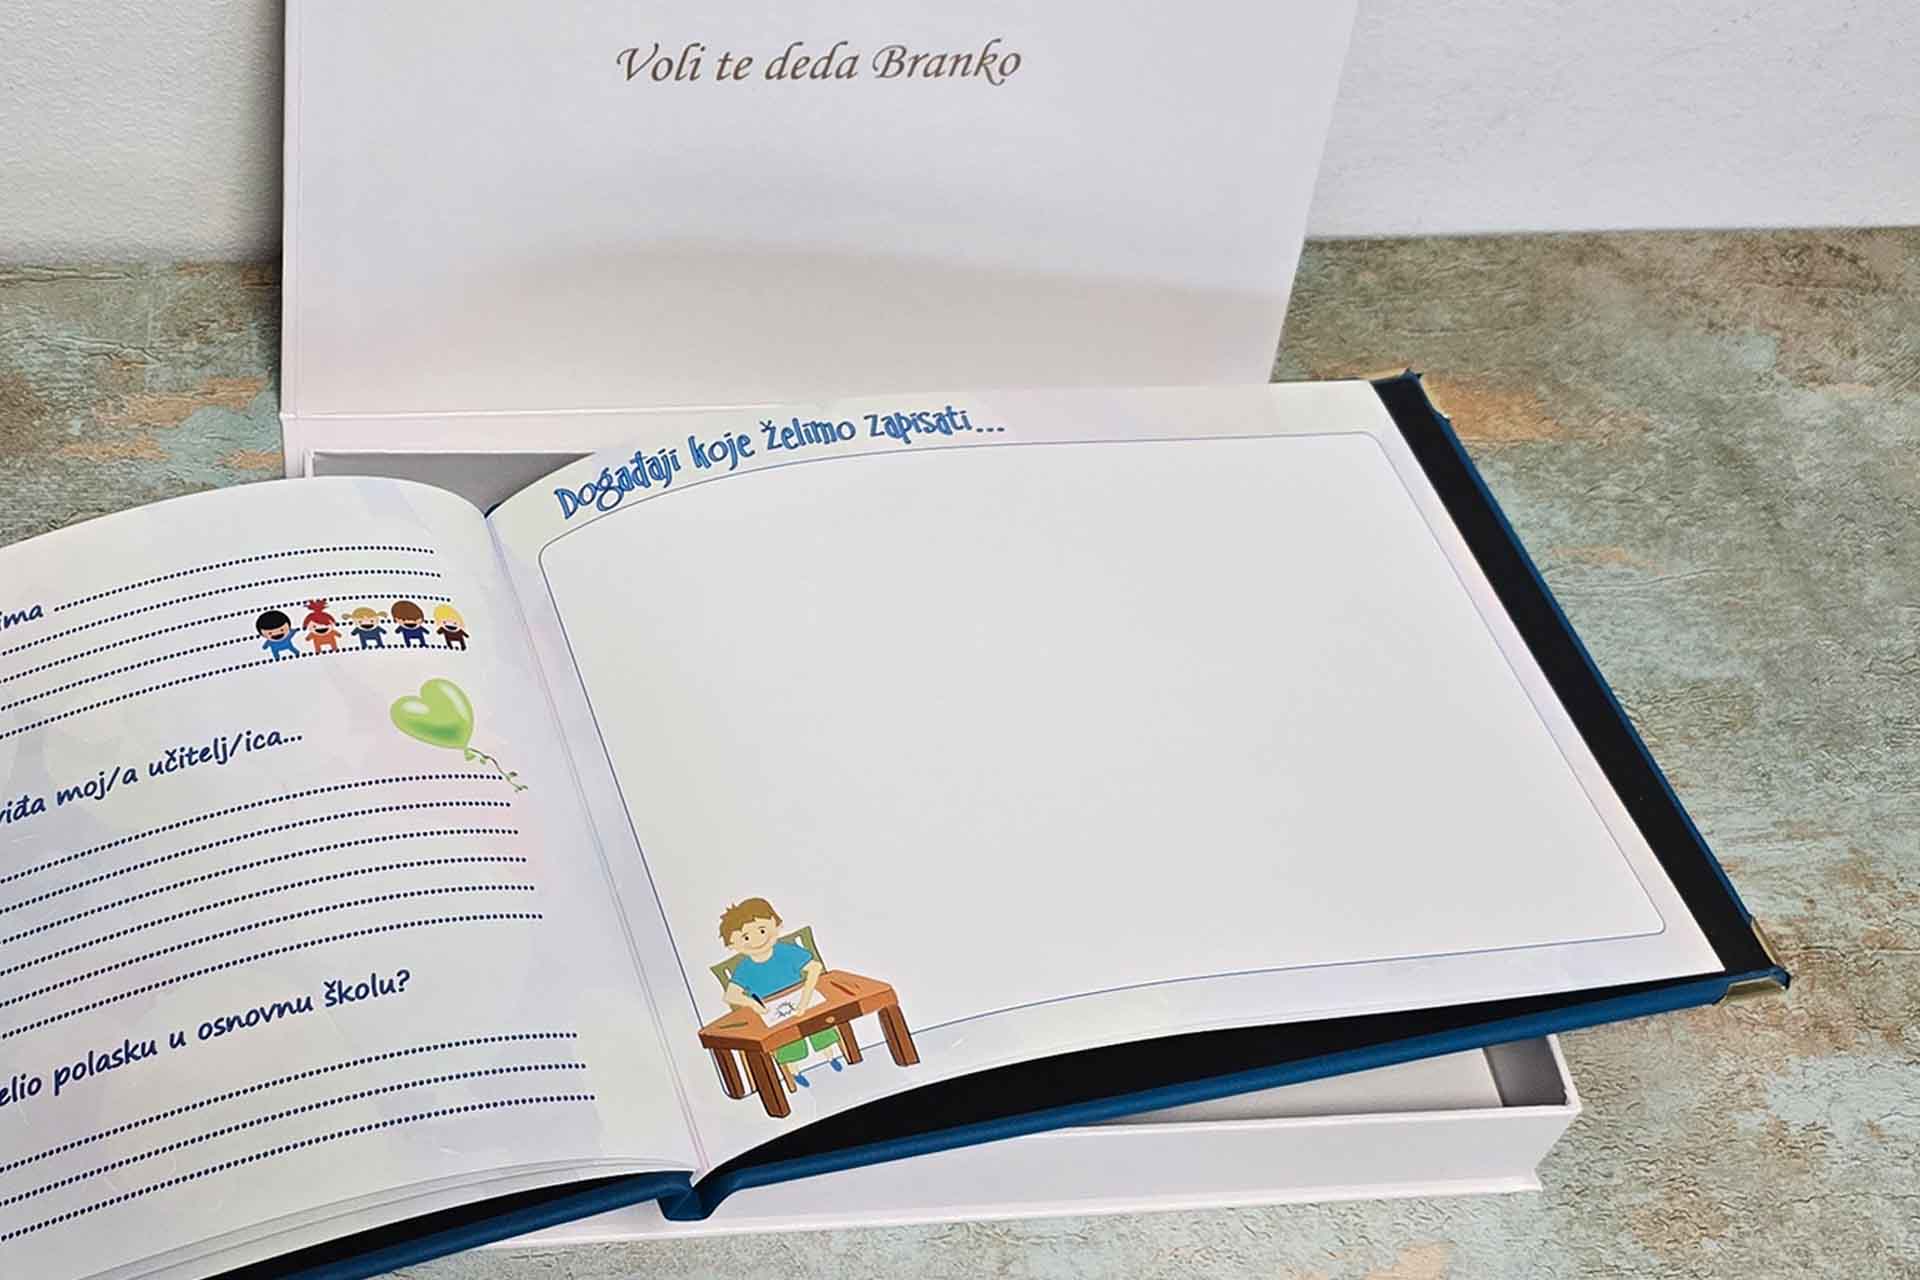 Voli te deda Branko
Događaji koje želimo zapisati...
moj/a učitelj/ica...
polasku u osnovnu školu?